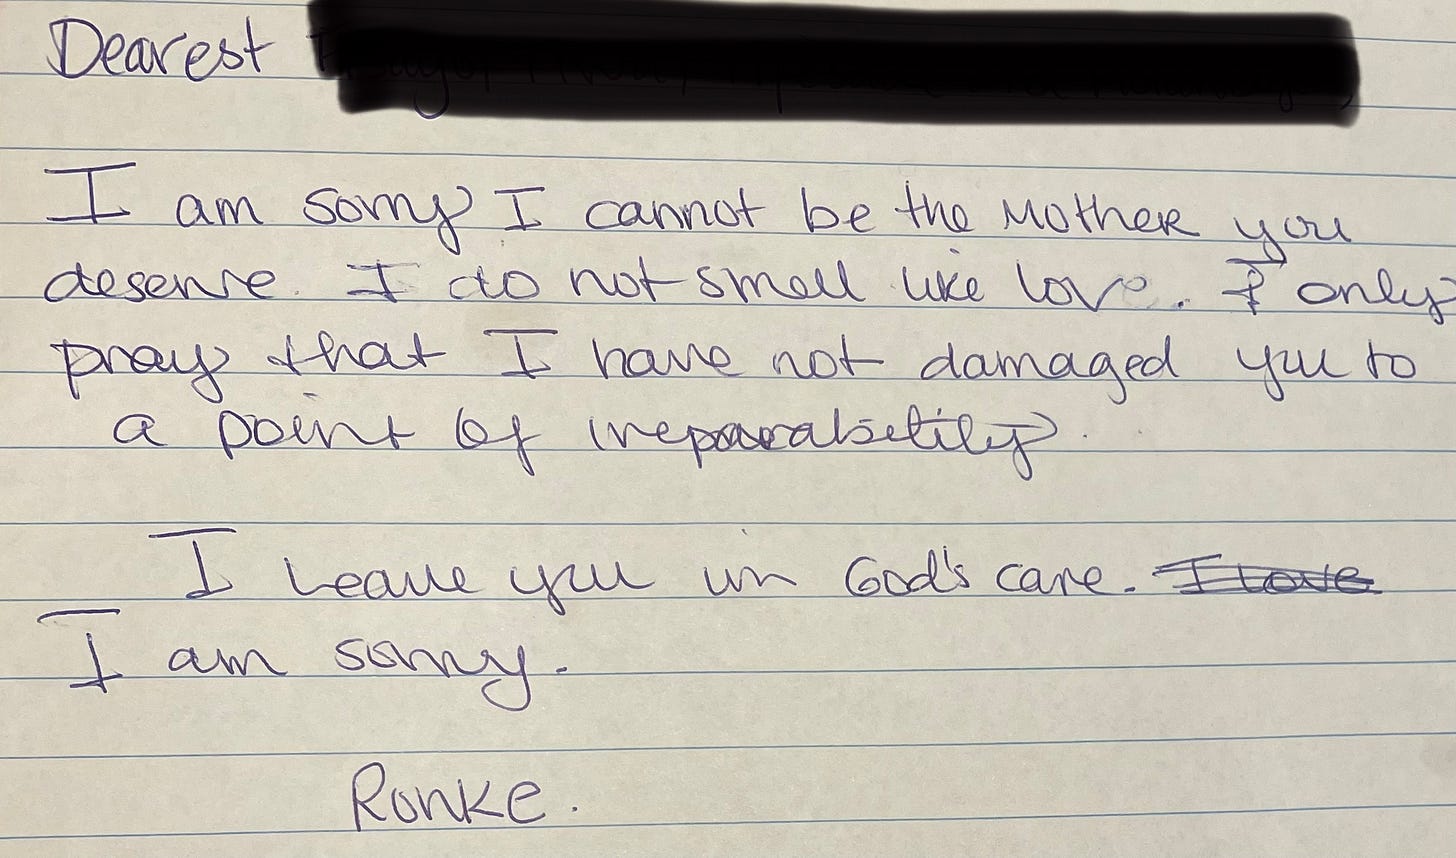 Dearest
I am sorry I cannot be the Mother you
deserve. I do not smell like love. I only
pray that I have not damaged you to
a point of irreparabitily.
I leave you in God's care. I love
I am sorry.
Ronke.